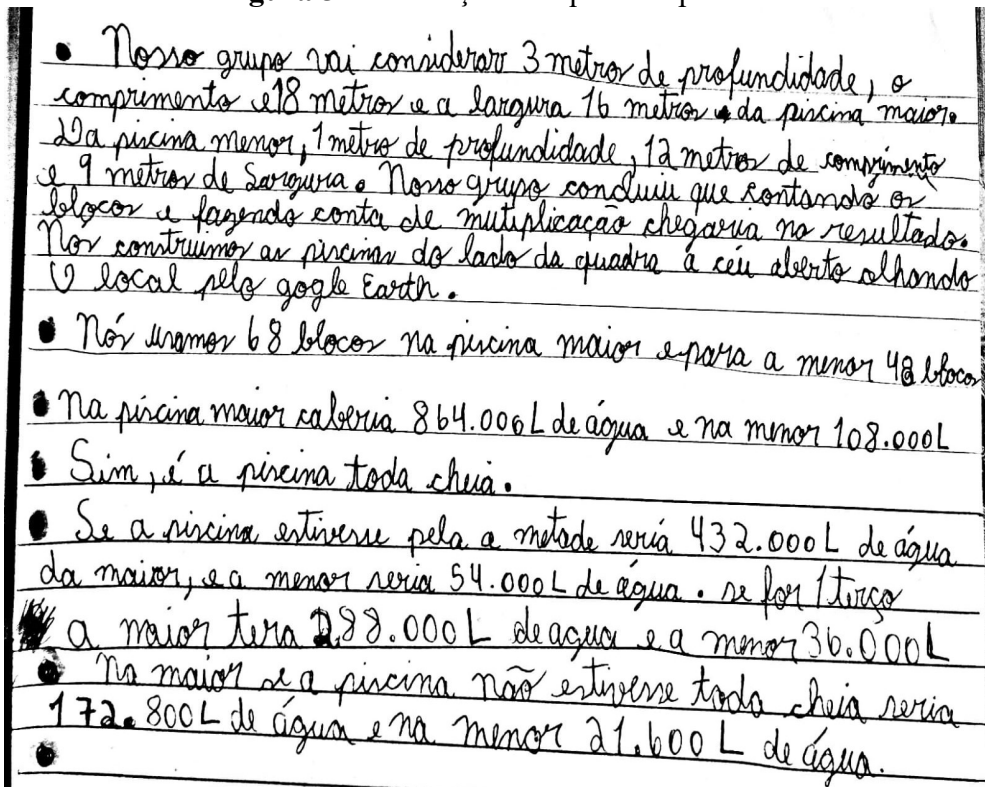 • Nosso grupo vai considerar 3 metros de profundidade, o
comprimento e 18 metros e a largura 16 metros da piscina maior.
Da piscina menor, 1 metro de profundidade, 12 metros de comprimento
e 9 metros de largura. Nosso grupo concluiu que contando os
blocos e fazendo conta de mutiplicação chegaria no resultado.
Nós construimos as piscinas do lado da quadra a céu aberto olhando
O local pelo gogle Earth.
• Nós usamos 68 blocos na piscina maior e para a menor 48 blocos
• Na piscina maior caberia 864.000L de água e na menor 108.000L
• Sim, é a piscina toda cheia.
• Se a piscina estivesse pela a metade seria 432.000L de água
da maior, e a menor seria 54.000L de água. se for 1 terço
a maior tera 288.000L de agua e a menor 36.000L
• Na maior se a piscina não estivesse toda cheia seria
172.800L de água e na menor 21.600L de água.
•